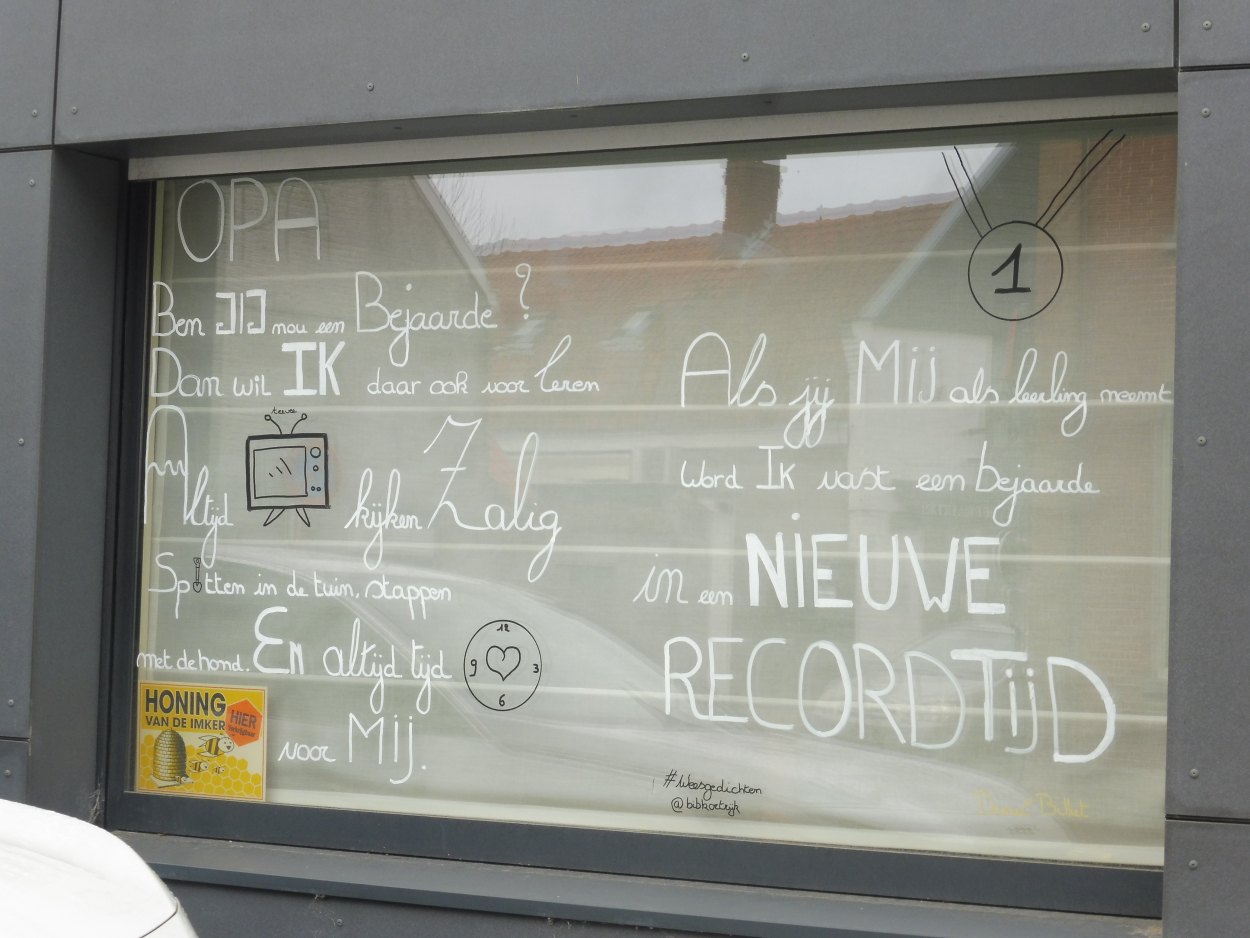 OPA
Ben JIJ nou een Bejaarde?
Dan wil IK daar ook voor leren
Altijd teevee kijken Zalig
Spitten in de tuin, stappen
met de hond. En altijd tijd
12
3
6
9
voor Mij.
HONING
VAN DE IMKER
HIER
verkrijgbaar
1
Als jij Mij als leerling neemt
Word IK vast een bejaarde
in een NIEUWE
RECORDTIJD
#Weesgedichten
@bibkortrijk
Billet